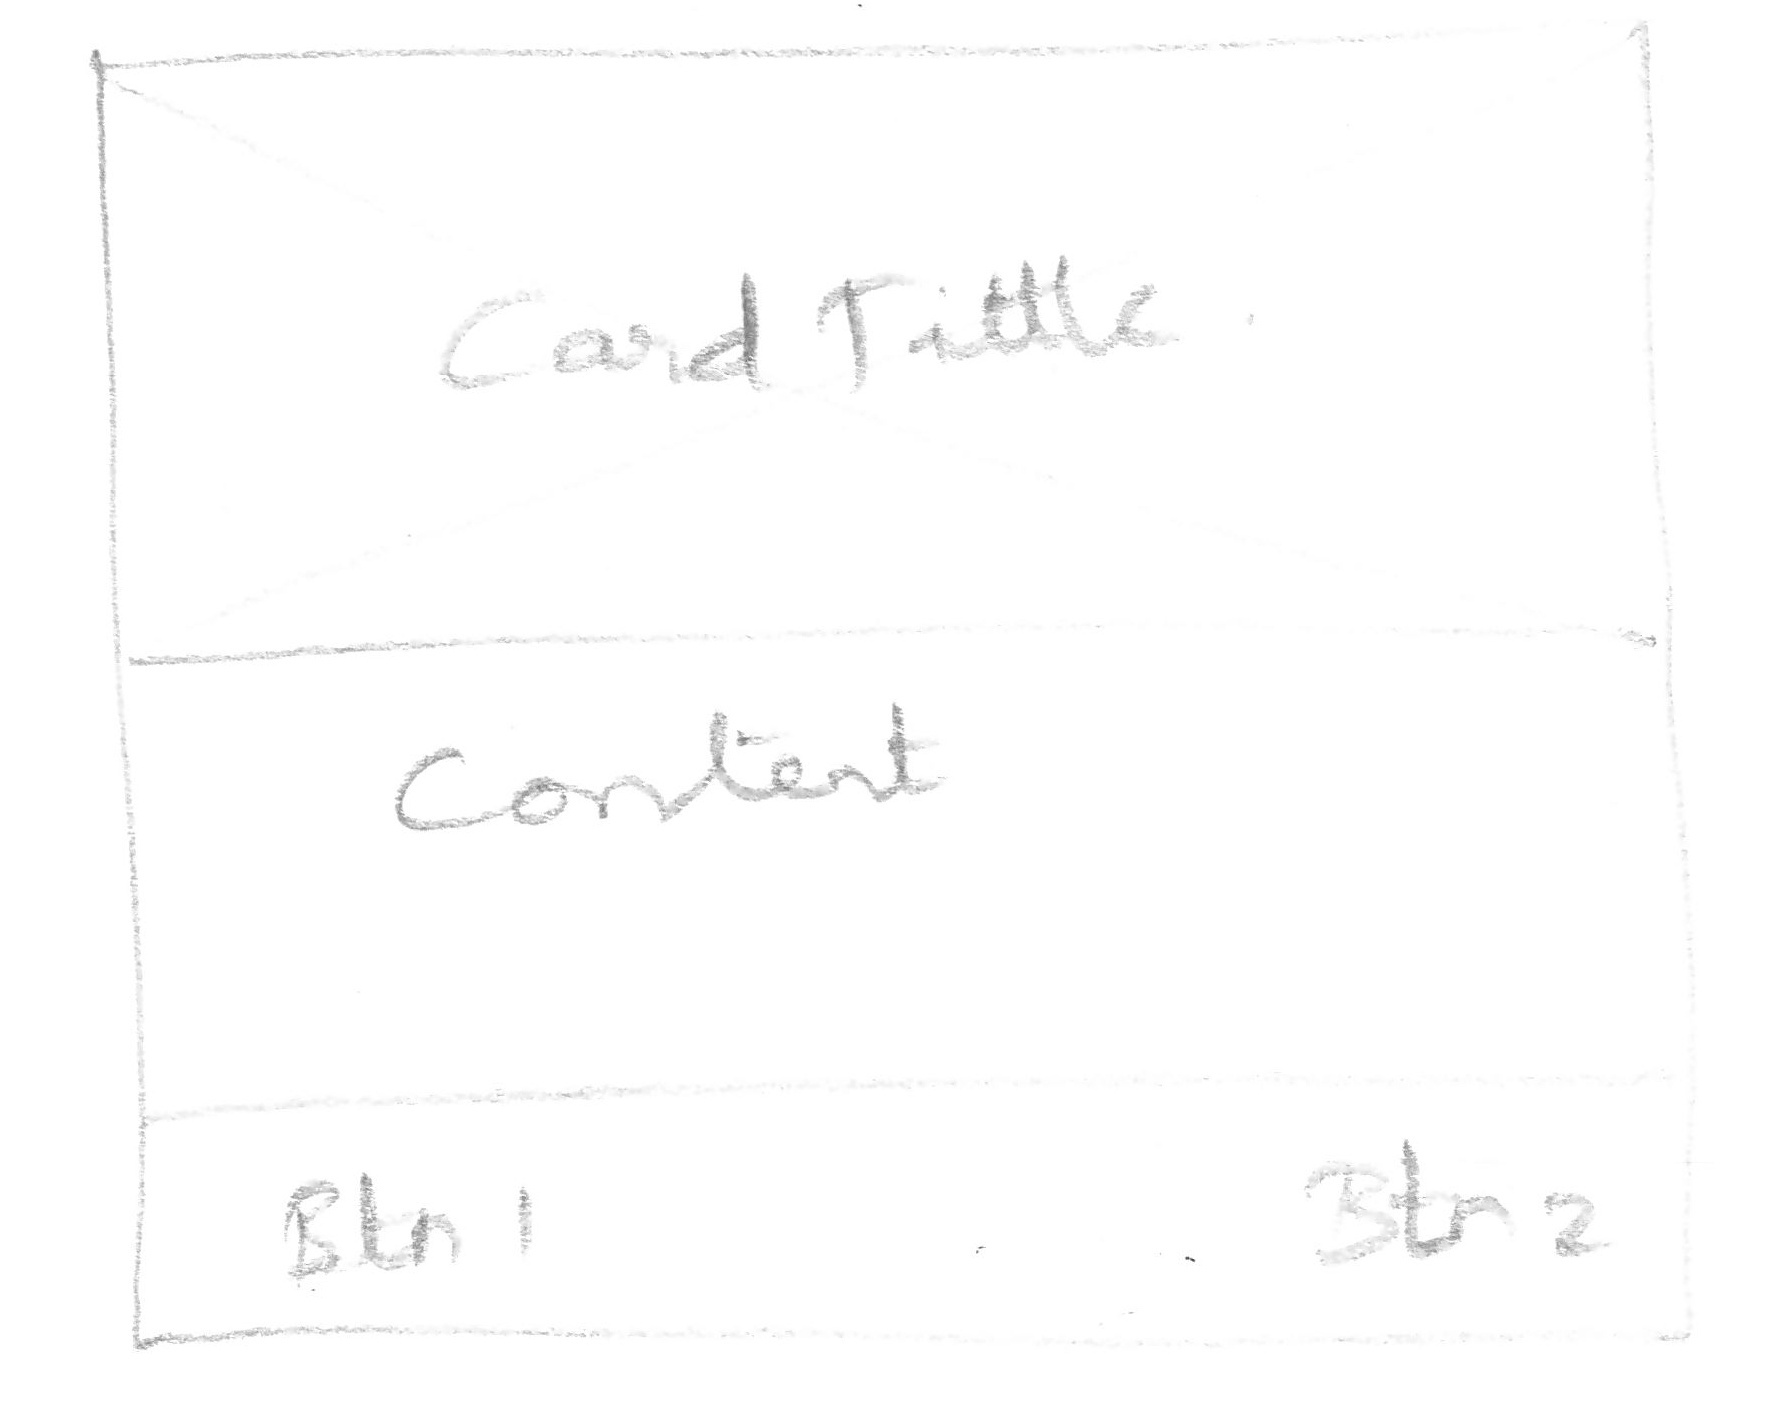 Card Tittle
Content
Btn 1
Btn 2